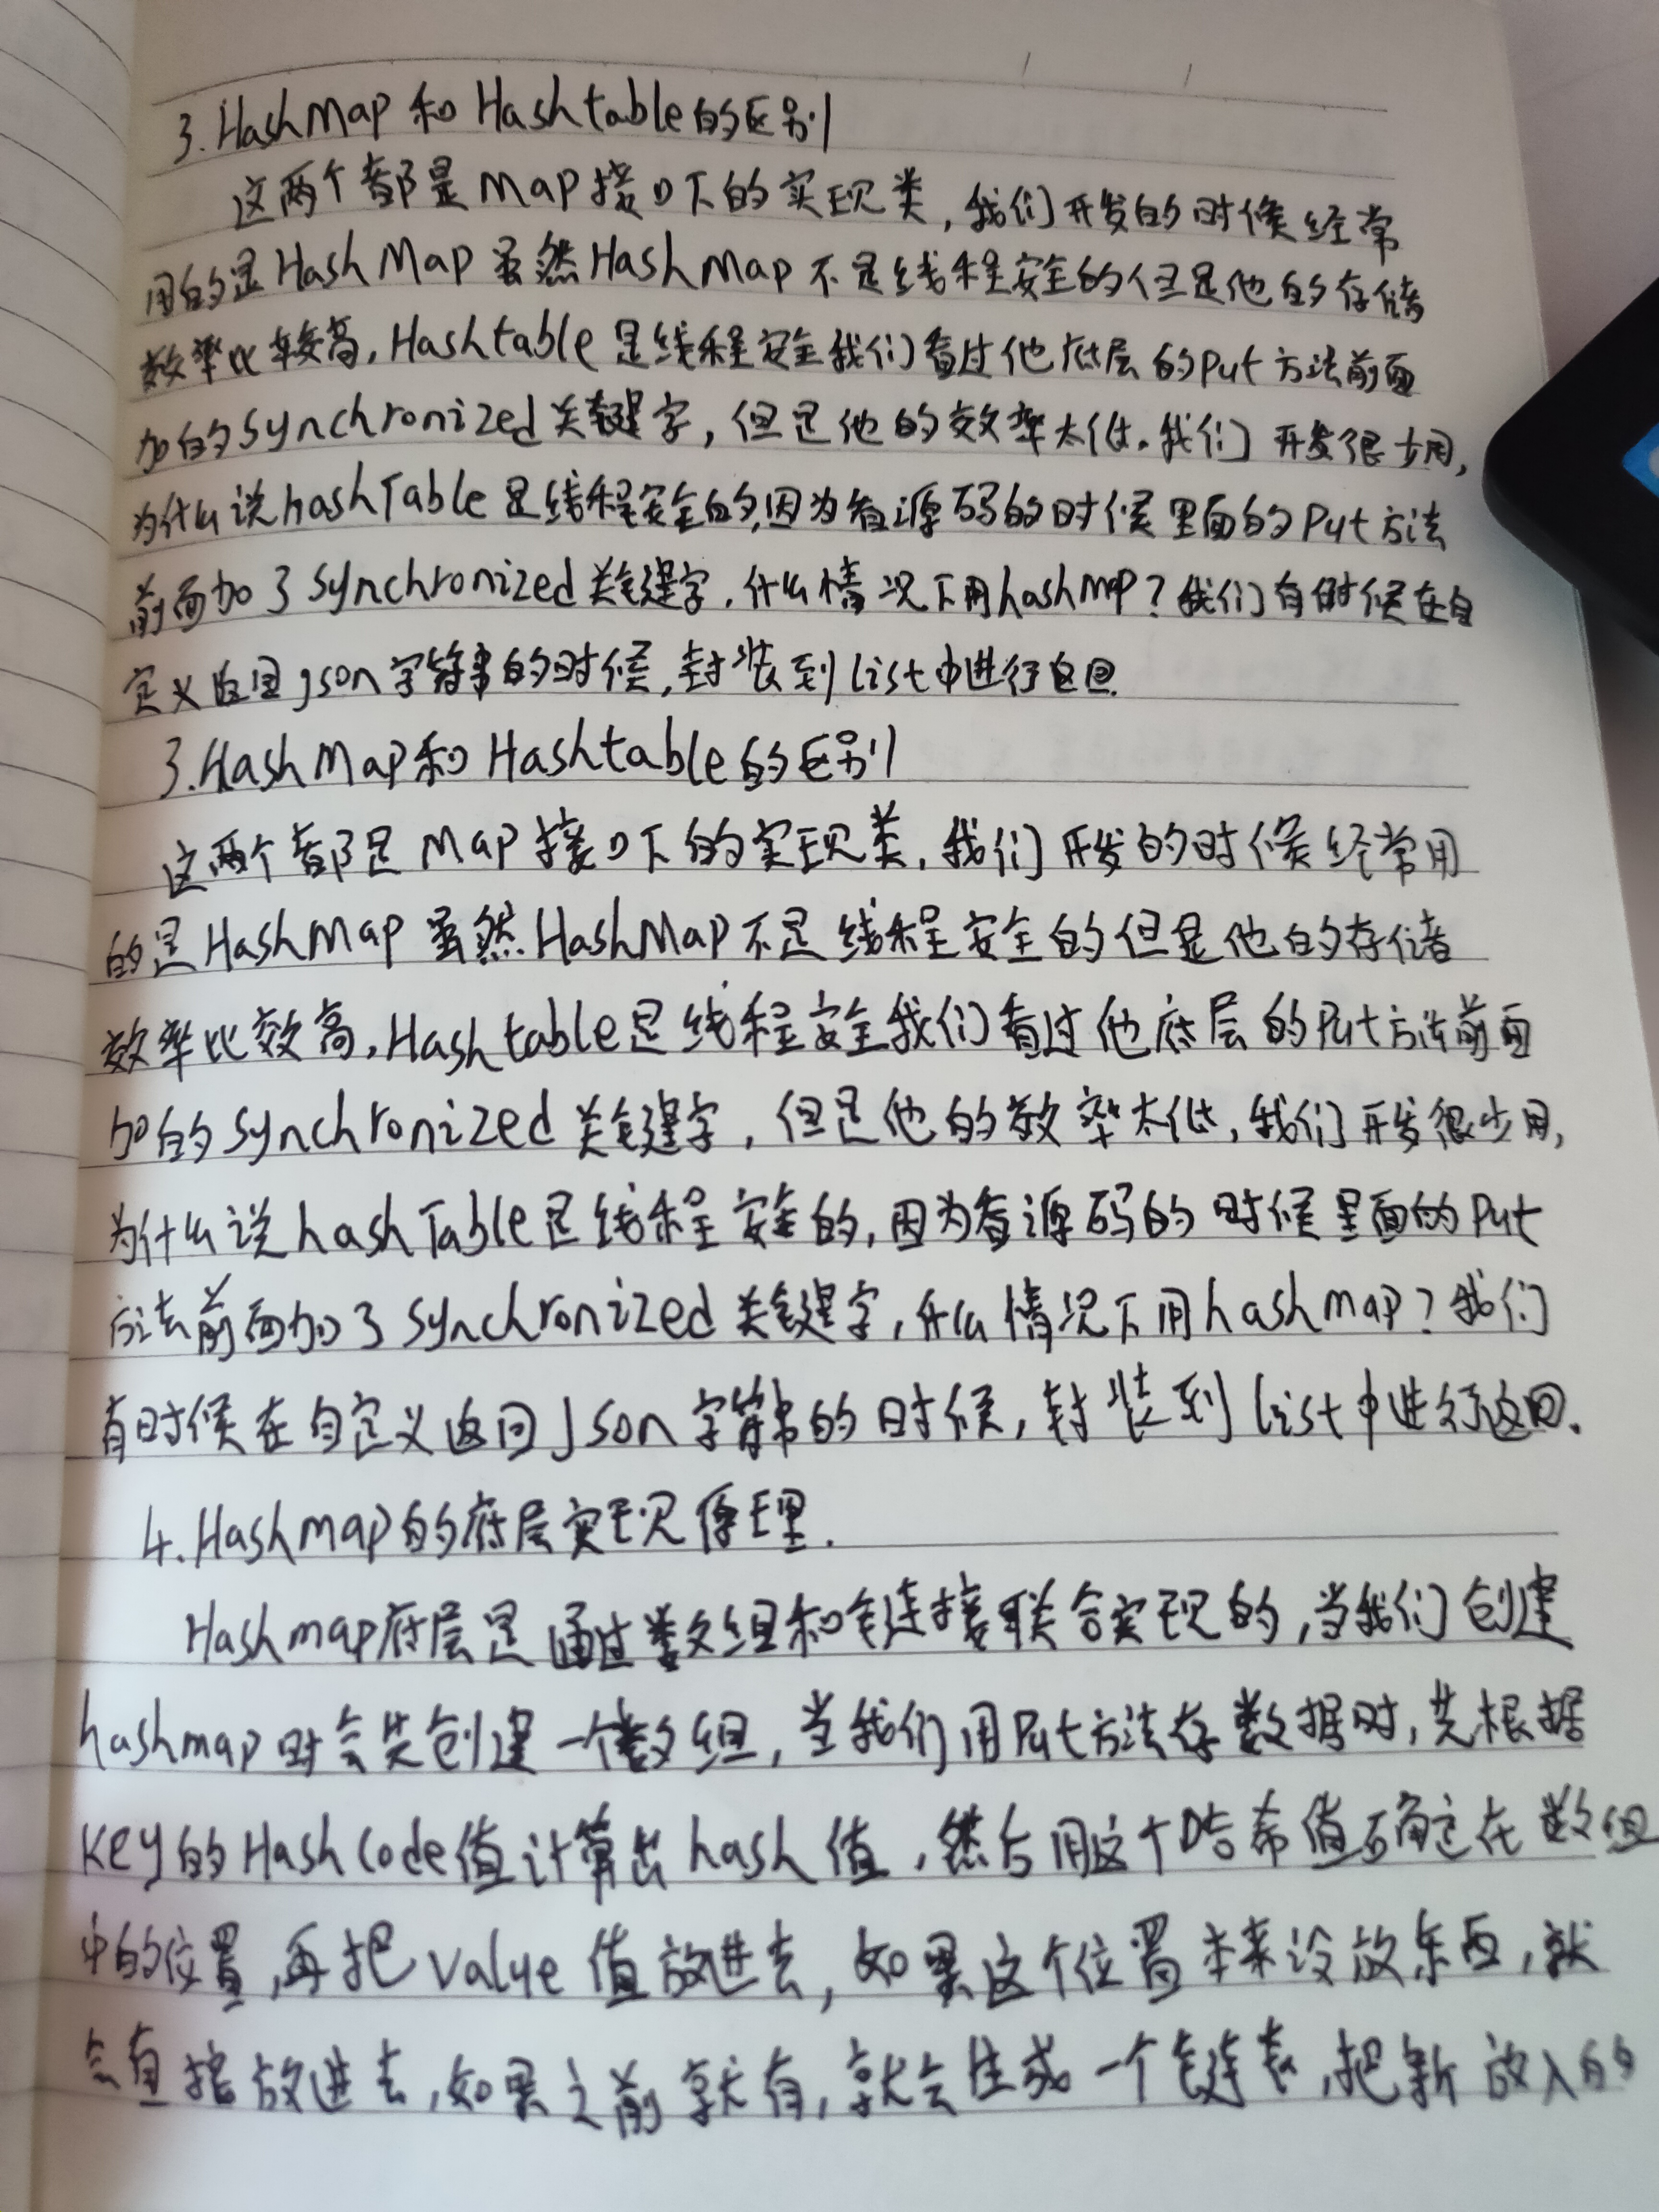 3.HashMap和Hashtable的区别
这两个都是Map接口下的实现类,我们开发的时候经常
用的是HashMap虽然HashMap不是线程安全的但是他的存储
效率比较高,Hashtable是线程安全我们看过他底层的put方法前面
加的synchronized关键字,但是他的效率太低。我们开发很少用,
为什么说hashTable是线程安全的,因为看源码的时候里面的put方法
前面加了synchronized关键字,什么情况下用hashmap?我们有时候在自
定义返回json字符串的时候,封装到list中进行返回.
3.HashMap和Hashtable的区别
这两个都是Map接口下的实现类,我们开发的时候经常用
的是HashMap虽然HashMap不是线程安全的但是他的存储
效率比效高,Hashtable是线程安全我们看过他底层的put方法前面
加的synchronized关键字,但是他的效率太低,我们开发很少用,
为什么说hashTable是线程安全的,因为看源码的时候里面的put
方法前面加了synchronized关键字,什么情况下用hashmap?我们
有时候在自定义返回Json字符串的时候,封装到list中进行返回.
4.Hashmap的底层实现原理.
Hashmap底层是通过数组和链接联合实现的,当我们创建
hashmap时会先创建一个数组,当我们用put方法存数据时,先根据
key的HashCode值计算出hash值,然后用这个哈希值确定在数组
中的位置,再把value值放进去,如果这个位置本来没放东西,就
会直接放进去,如果之前就有,就会生成一个链表,把新放入的